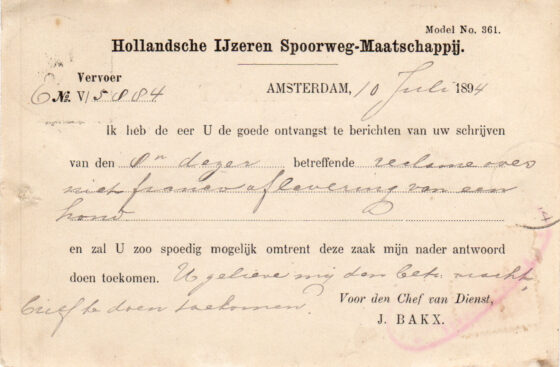 Model No. 361.
Hollandsche IJzeren Spoorweg-Maatschappij.
Vervoer
No. V/5884 AMSTERDAM, 10 Juli 1894
Ik heb de eer U de goede ontvangst te berichten van uw schrijven
van den dezer betreffende reclame over
niet franco aflevering van een
hond
en zal U zoo spoedig mogelijk omtrent deze zaak mijn nader antwoord
doen toekomen. U gelieve mij den betr. vracht
brief te doen toekomen.
Voor den Chef van Dienst,
J. BAKX.